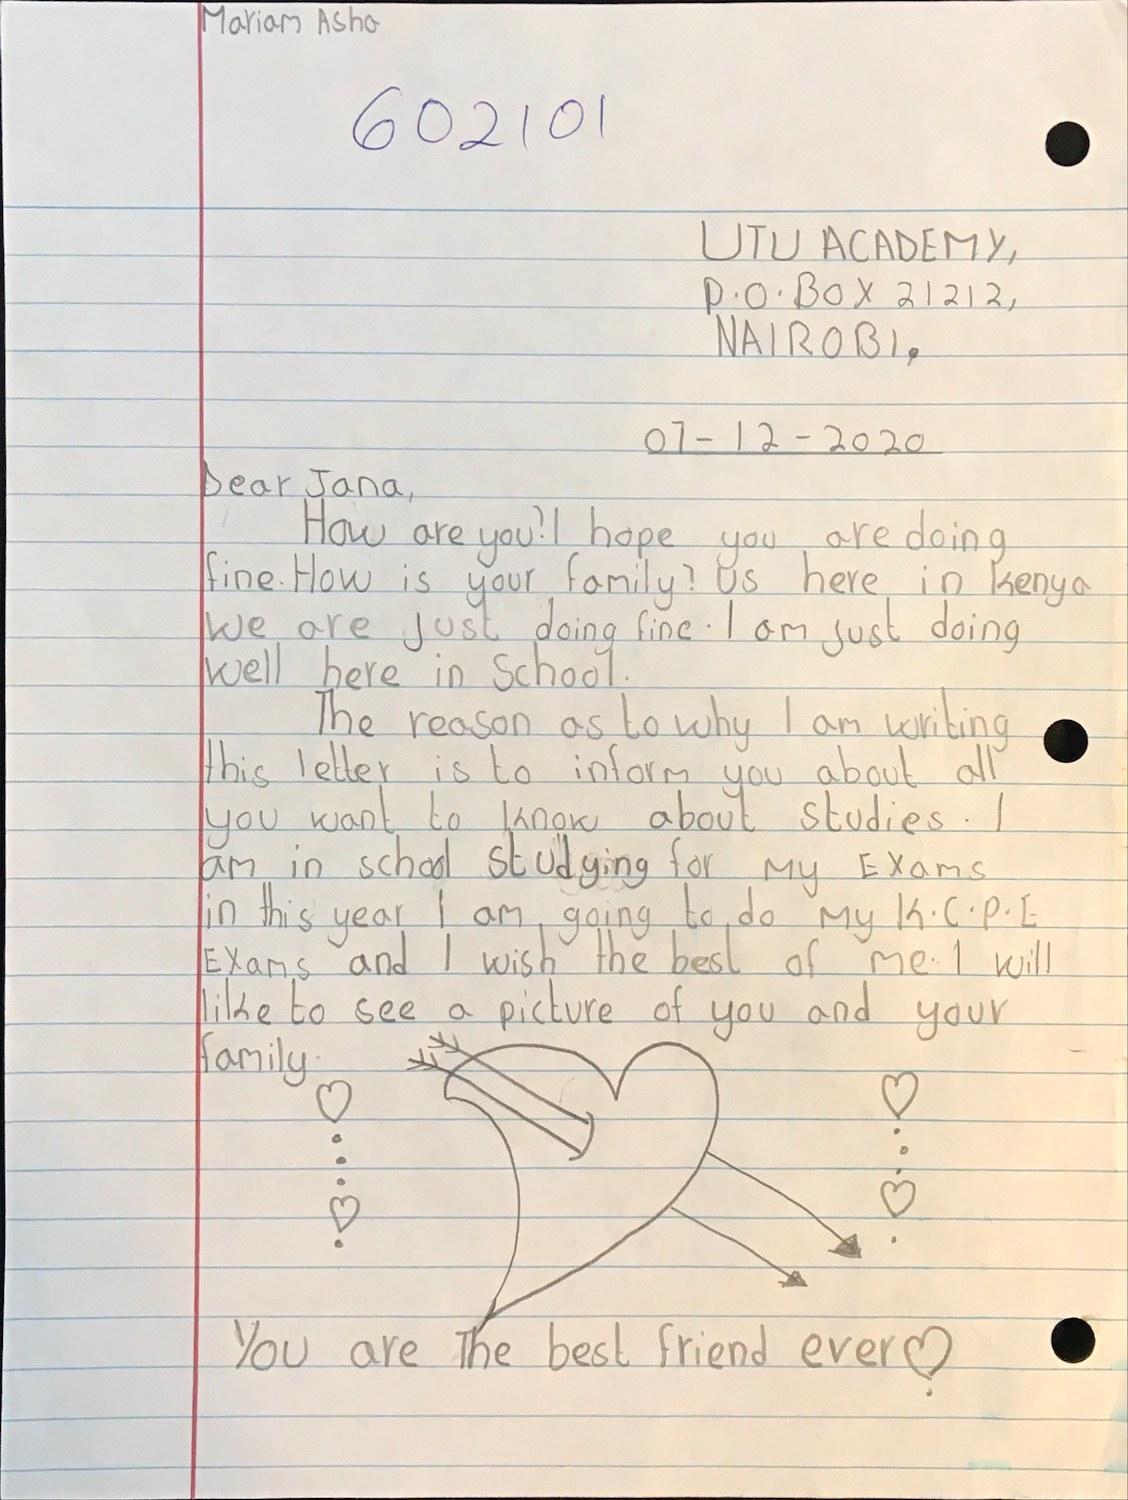 Mariam Asha
602101
UTU ACADEMY,
P.O.BOX 21212,
NAIROBI.
07-12-2020
Dear Jana,
How are you? I hope you are doing
fine. How is your family? Us here in Kenya
we are just doing fine. I am just doing
well here in School.
The reason as to why I am writing
this letter is to inform you about all
you want to know about studies. I
am in school studying for my Exams
in this year I am going to do my K.C.P.E
Exams and I wish the best of me. I will
like to see a picture of you and your
family.
You are The best friend ever